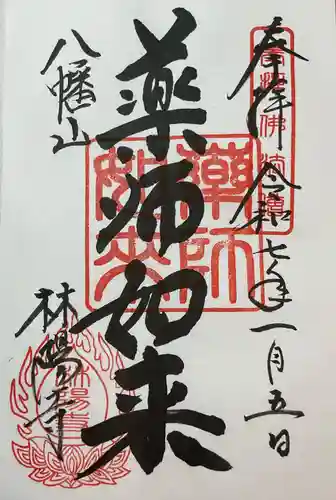 奉拝
令和七年一月五日
薬師如来
八幡山
林陽寺
薬師如来